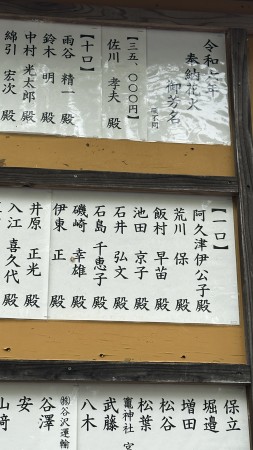 令和七年
奉納花火
御芳名
順不同
【三五、〇〇〇円】
佐川 孝夫 殿
【十口】
雨谷 精一 殿
鈴木 明 殿
中村 光太郎 殿
綿引 宏次 殿
【一口】
阿久津 伊公子 殿
荒川 保 殿
飯村 早苗 殿
池田 京子 殿
石井 弘文 殿
石島 千恵子 殿
磯崎 幸雄 殿
伊東 正 殿
井原 正光 殿
入江 喜久代 殿
保立
堀邉
増田
松谷
松葉
武藤
竈神社 宮
八木
㈱谷沢運輸
谷澤
安
山﨑